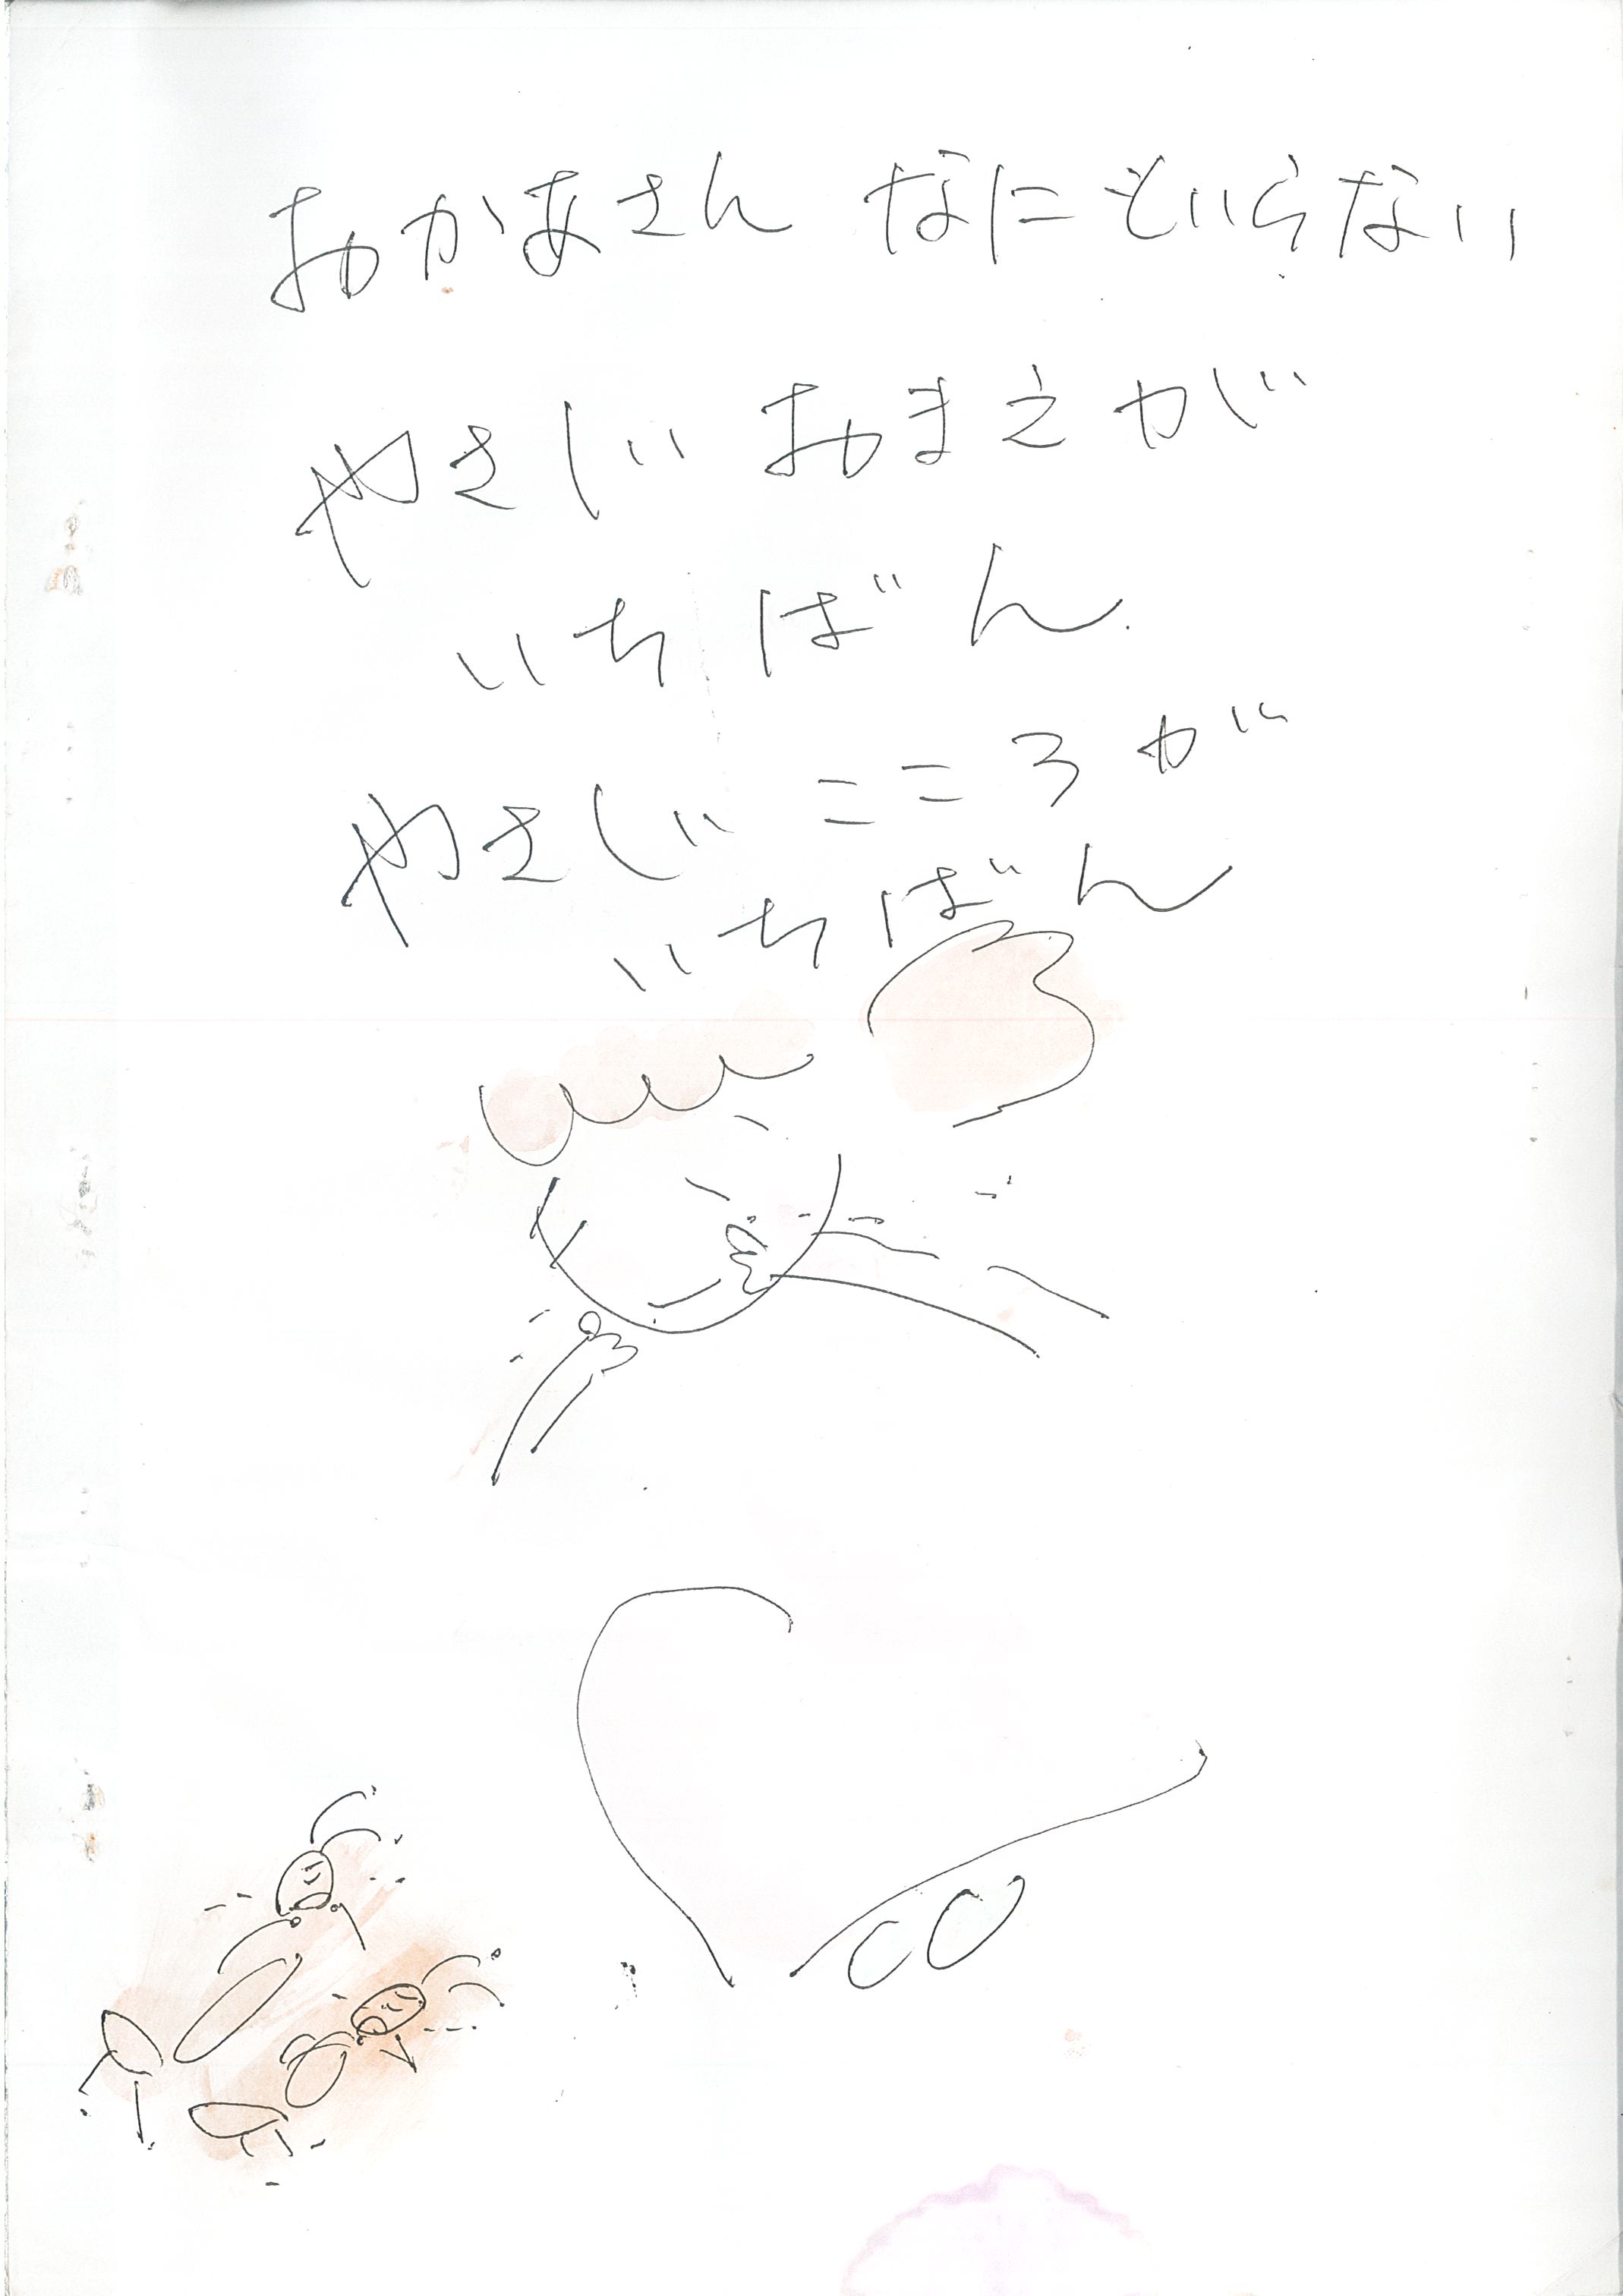 おかあさん なにもいらない
やさしい おまえが
いちばん
やさしい こころが
いちばん